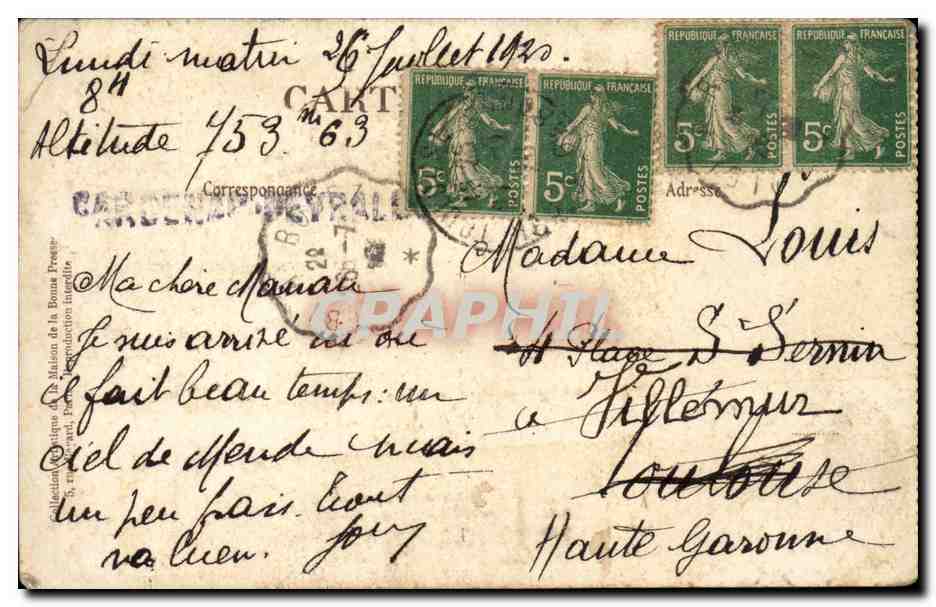 Lundi matin 26 Juillet 1920.
8H
Altitude 753 m 63
CART
RÉPUBLIQUE FRANÇAISE
5c
POSTES
RÉPUBLIQUE FRANÇAISE
5c
POSTES
RÉPUBLIQUE FRANÇAISE
5c
POSTES
RÉPUBLIQUE FRANÇAISE
5c
POSTES
Correspondance
Adresse
Ma chère Maman
Je suis arrivé ici où
il fait beau temps: un
ciel de Mende mais
un peu frais. Tout
va bien.
Madame Louis
11 Place St Sernin
à Villemur
Toulouse
Haute Garonne
Collection artistique de la Maison de la Bonne Presse
5, rue Bayard, Paris. Reproduction interdite
CPAPHIL